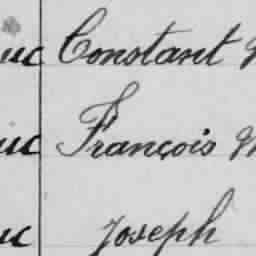 uc Constant
uc François
uc Joseph